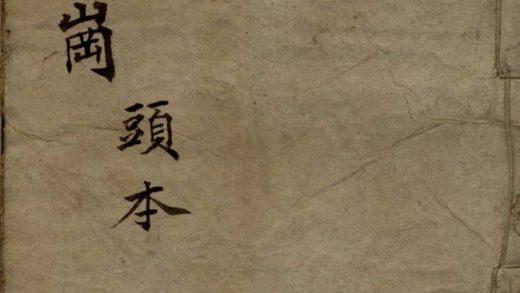 崗頭本